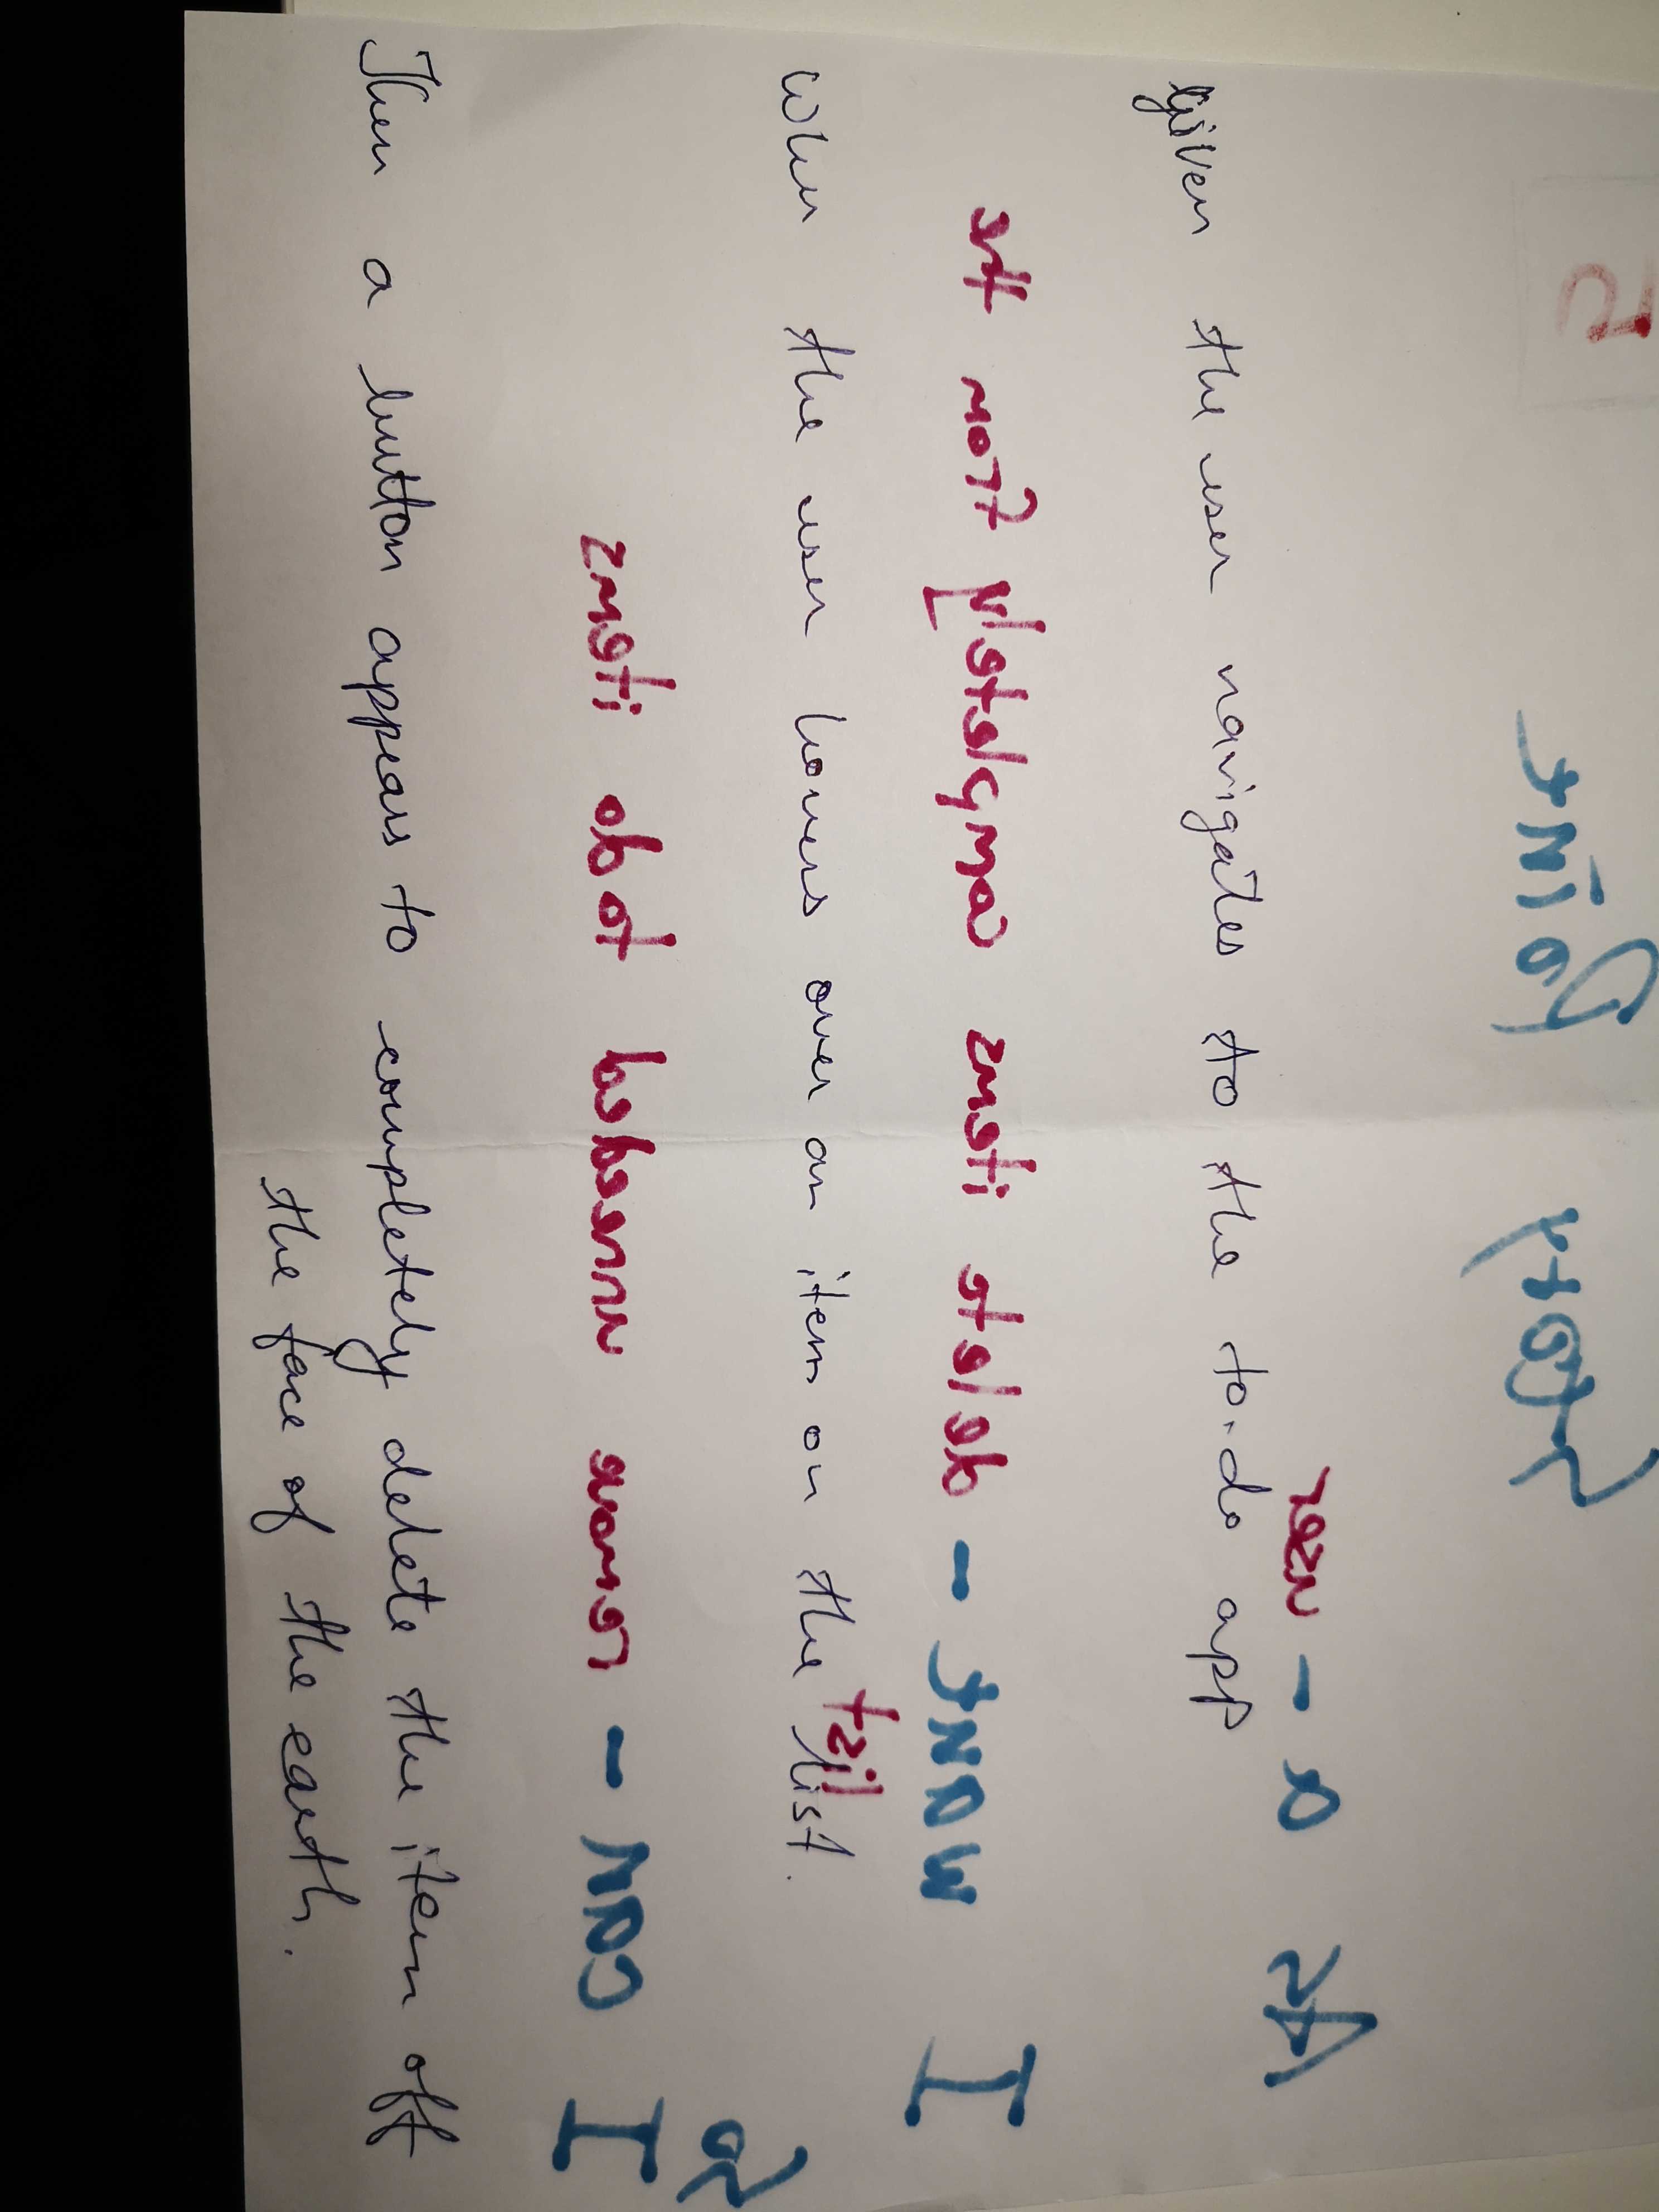 Story Point 5
As a - user
given the user navigates to the to-do app
I want - delete items completely from the
list
when the user hovers over an item on the list.
So
I can - remove unneeded todo items
Then a button appears to completely delete the item off
the face of the earth.